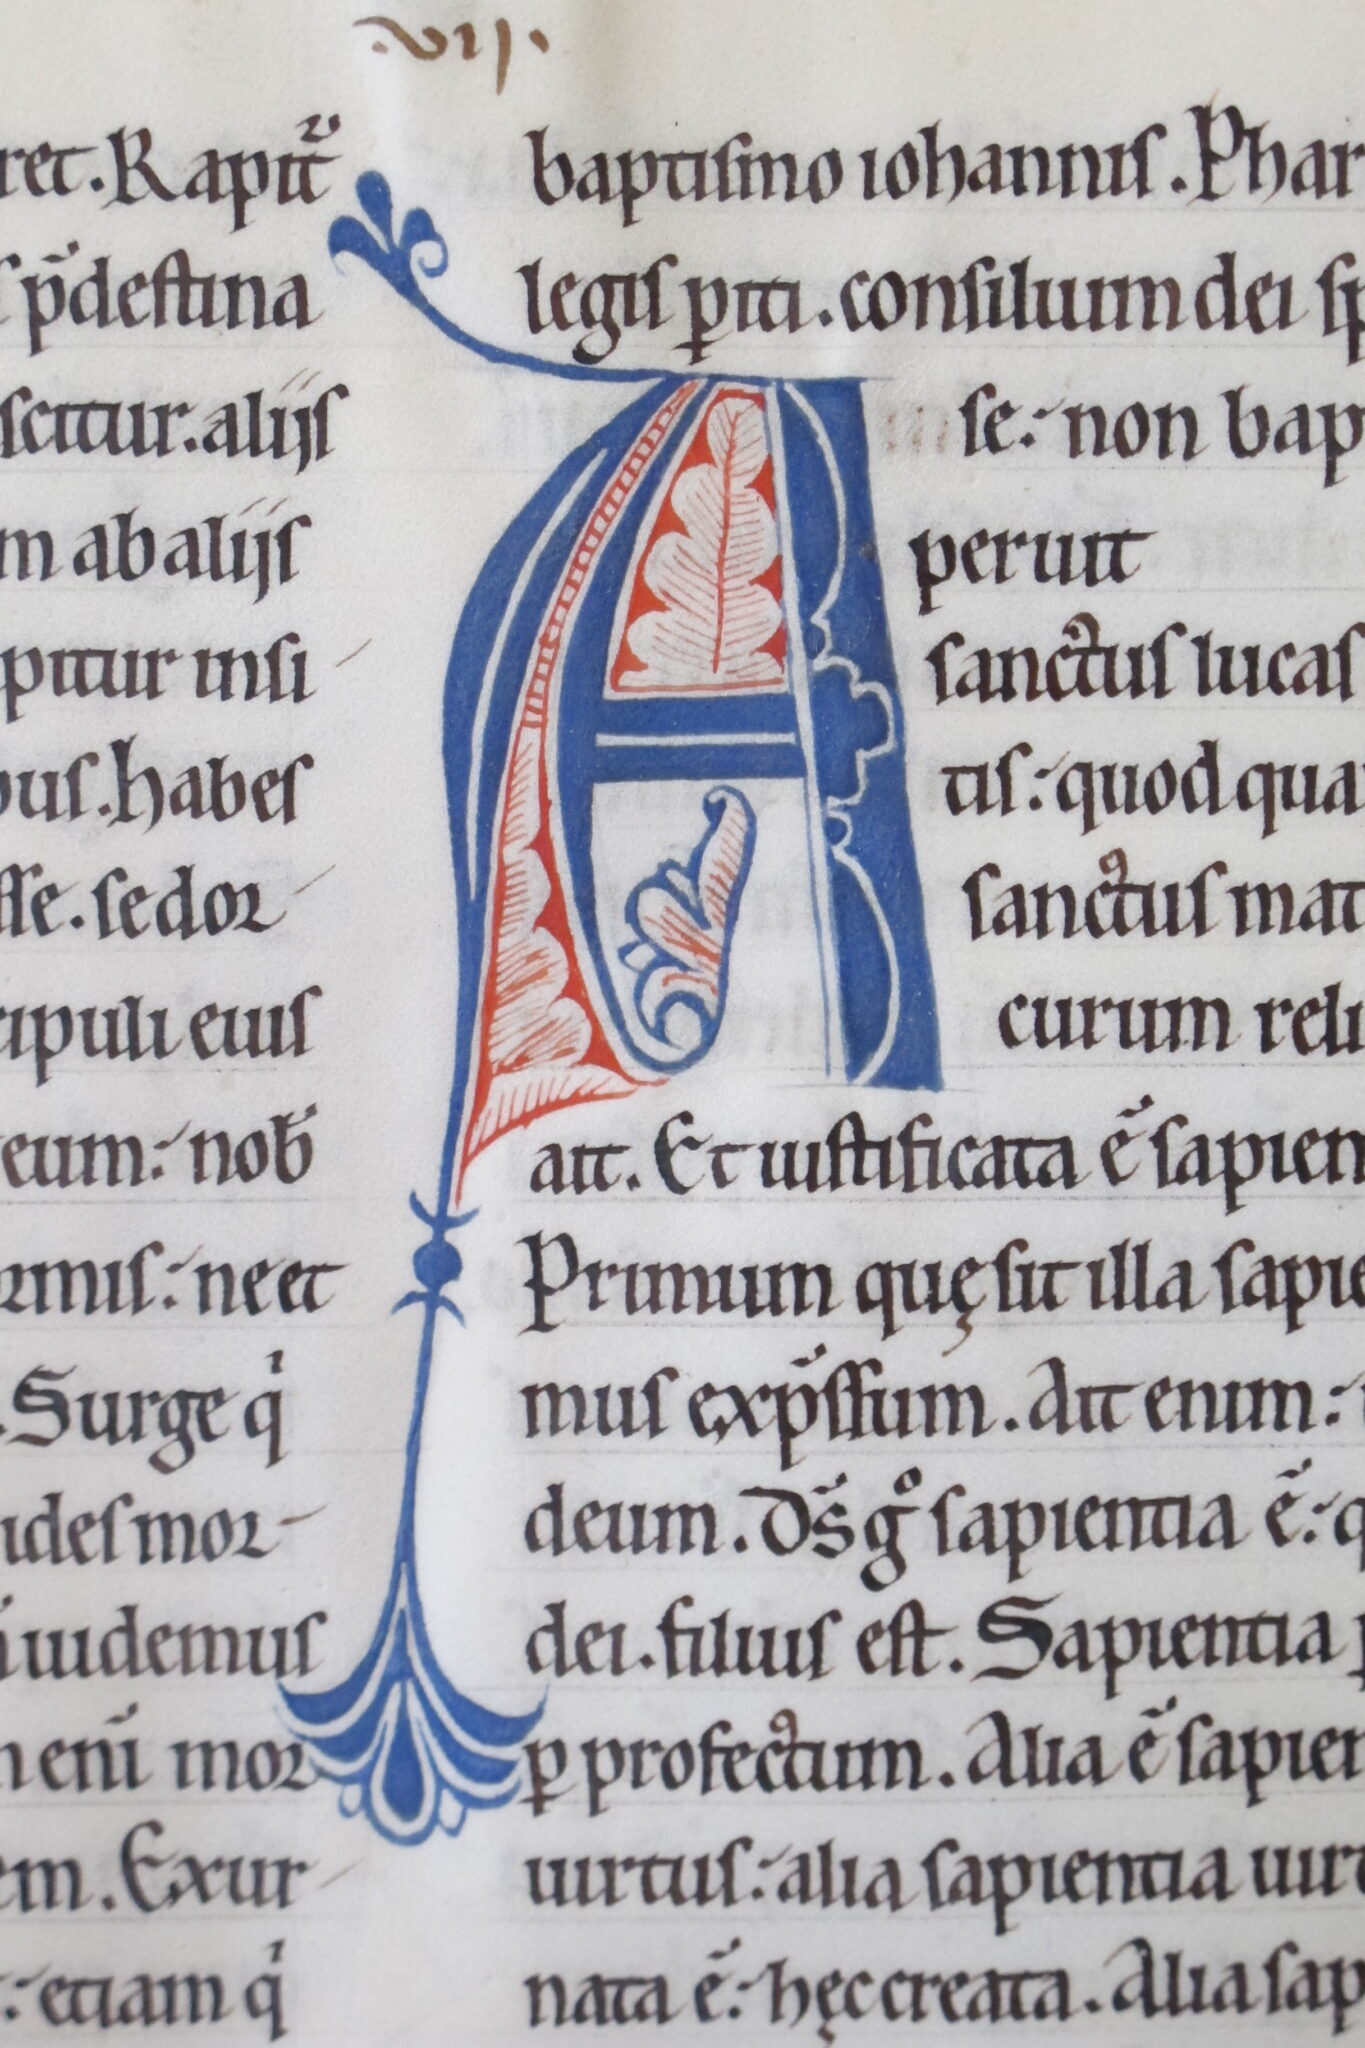 .vii.
ret. Rapit᷑
p̄destina
scitur. alijs
m ab alijs
pitur insi
bus. habes
sse. sed or
cipuli eius
eum: nob̄
rmis: ne et
. Surge qⁱ
ides mor
uidemus
eni̅ mor
em. Exur
: etiam qⁱ
baptismo iohannis. Phar
legis ꝑiti. consilium dei sp
se: non bap
A peruit
sanctus lucas
tis: quod qua
sanctus mat
curum reli
ait. Et iustificata ē sapien
Primum quę sit illa sapie
mus exp̄ssum. Ait enim:
deum. D̄s gͦ sapientia ē: q
dei. filius est. Sapientia p
ꝑ profectum. Alia ē sapien
uirtus: alia sapientia uirt
nata ē: hęc creata. Alia sap